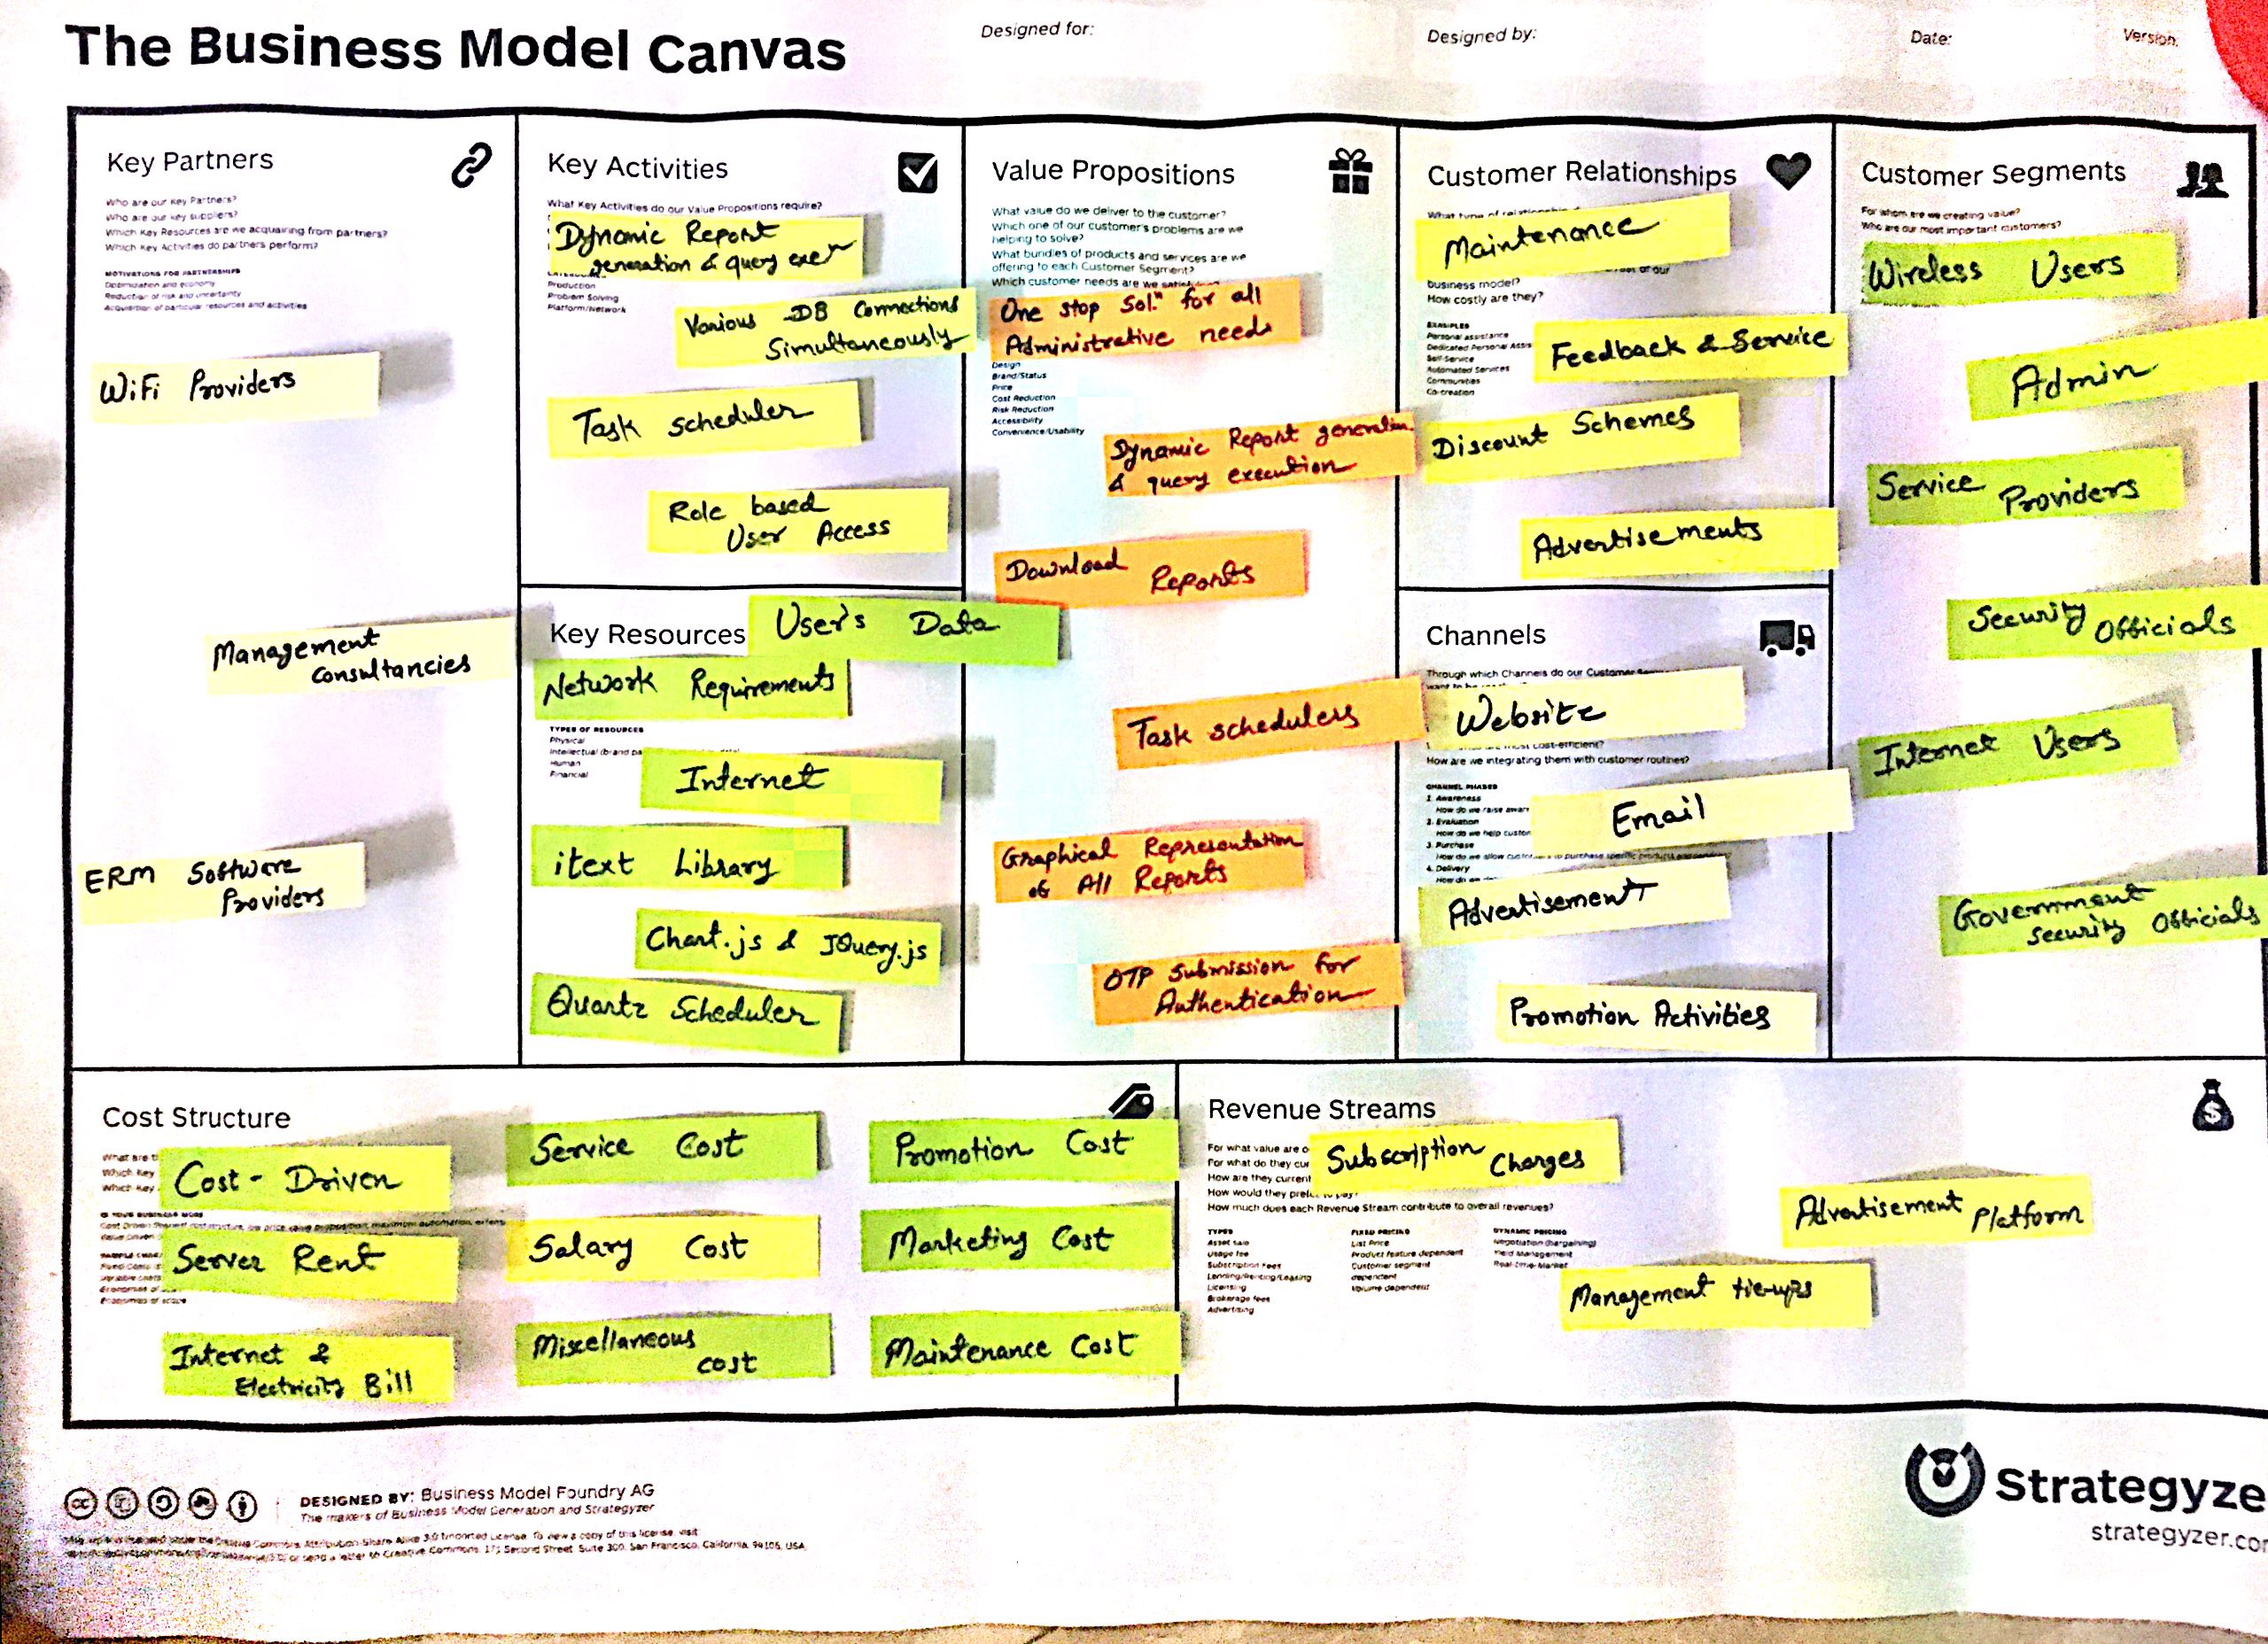 The Business Model Canvas
Designed for:
Designed by:
Date:
Version:
Key Partners
Who are our Key Partners?
Who are our key suppliers?
Which Key Resources are we acquairing from partners?
Which Key Activities do partners perform?
MOTIVATIONS FOR PARTNERSHIPS
Optimization and economy
Reduction of risk and uncertainty
Acquisition of particular resources and activities
WiFi Providers
Management
Consultancies
ERM Software
Providers
Key Activities
What Key Activities do our Value Propositions require?
Dynamic Report
generation & query exe
Production
Problem Solving
Platform/Network
Various DB Connections
Simultaneously
Task scheduler
Role based
User Access
Key Resources
User's Data
Network Requirements
TYPES OF RESOURCES
Physical
Intellectual (brand pa
Human
Financial
Internet
itext Library
Chart.js & JQuery.js
Quartz Scheduler
Value Propositions
What value do we deliver to the customer?
Which one of our customer's problems are we
helping to solve?
What bundles of products and services are we
offering to each Customer Segment?
Which customer needs are we
One stop Sol.n for all
Administrative needs
Design
Brand/Status
Price
Cost Reduction
Risk Reduction
Accessibility
Convenience/Usability
Dynamic Report generation
& query execution
Download Reports
Task schedulers
Graphical Representation
of All Reports
OTP Submission for
Authentication
Customer Relationships
What type of
Maintenance
business model?
How costly are they?
EXAMPLES
Personal assistance
Dedicated Personal Assis
Self-Service
Automated Services
Communities
Co-creation
Feedback & Service
Discount Schemes
Advertisements
Channels
Through which Channels do our Customer
Website
cost-efficient?
How are we integrating them with customer routines?
CHANNEL PHASES
1. Awareness
How do we raise awar
2. Evaluation
How do we help custon
3. Purchase
How do we allow
4. Delivery
Email
Advertisement
Promotion Activities
Customer Segments
For whom are we creating value?
Who are our most important customers?
Wireless Users
Admin
Service Providers
Security Officials
Internet Users
Government
Security Officials
Cost Structure
What are t
Which Key
Which Key
Cost-Driven
Server Rent
Internet &
Electricity Bill
Service Cost
Salary Cost
Miscellaneous
cost
Promotion Cost
Marketing Cost
Maintenance Cost
Revenue Streams
For what value are o
For what do they cur
How are they current
How would they
How much does each Revenue Stream contribute to overall revenues?
Subscription Charges
TYPES
Asset sale
Usage fee
Subscription Fees
Lending/Renting/Leasing
Licensing
Brokerage fees
Advertising
FIXED PRICING
List Price
Product feature dependent
Customer segment
dependent
Volume dependent
DYNAMIC PRICING
Negotiation (bargaining)
Yield Management
Real-time-Market
Advertisement Platform
Management tie-ups
DESIGNED BY: Business Model Foundry AG
The makers of Business Model Generation and Strategyzer
Strategyze
strategyzer.co